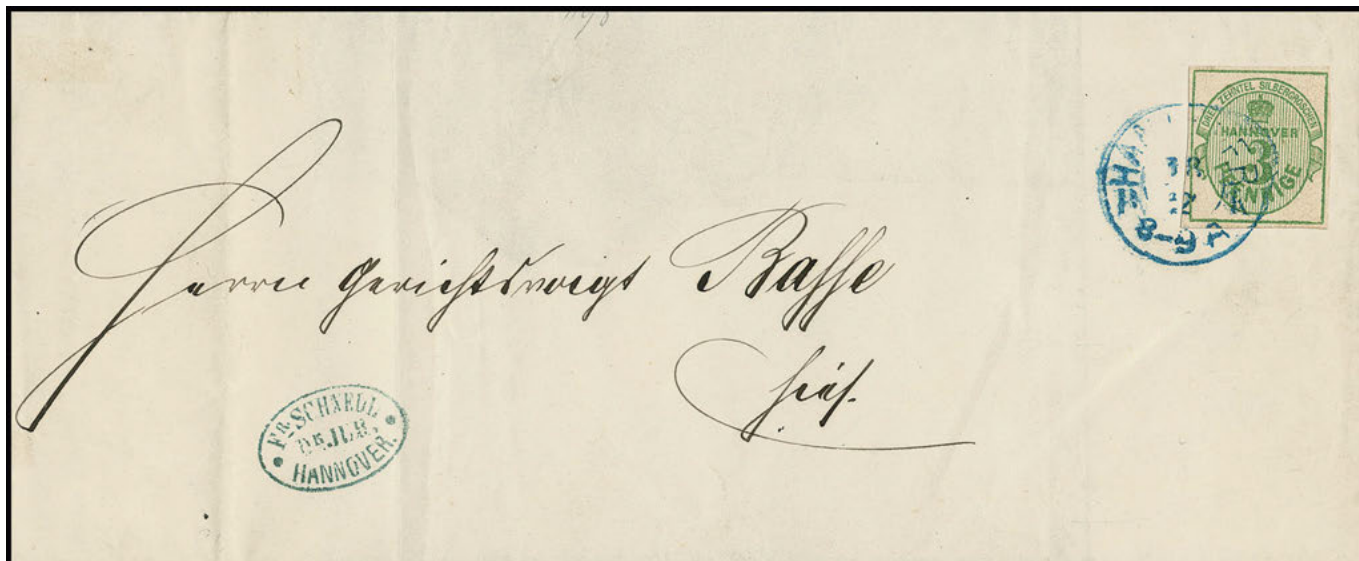 DREI ZEHNTEL SILBERGROSCHEN
HANNOVER
3
PFENNIGE
8-9 A
Herrn Gerichtsvoigt Basse
hies.
Fr. SCHNELL
DR. JUR.
HANNOVER.